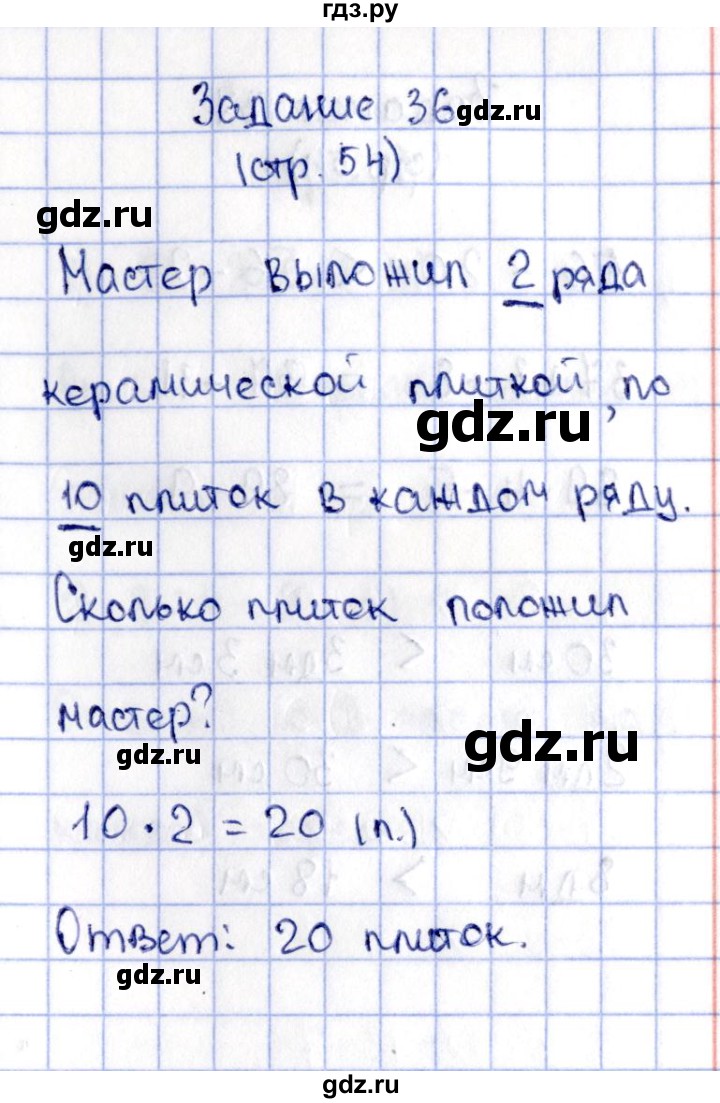 гдз.ру
Задание 36
gdz.ru
(стр. 54)
gdz.ru
Мастер выложил 2 ряда
керамической плиткой, по
gdz.ru
10 плиток в каждом ряду.
gdz.ru
Сколько плиток положил
мастер?
gdz.ru
gdz.ru
10 · 2 = 20 (п.)
Ответ: 20 плиток.
gdz.ru
gdz.ru